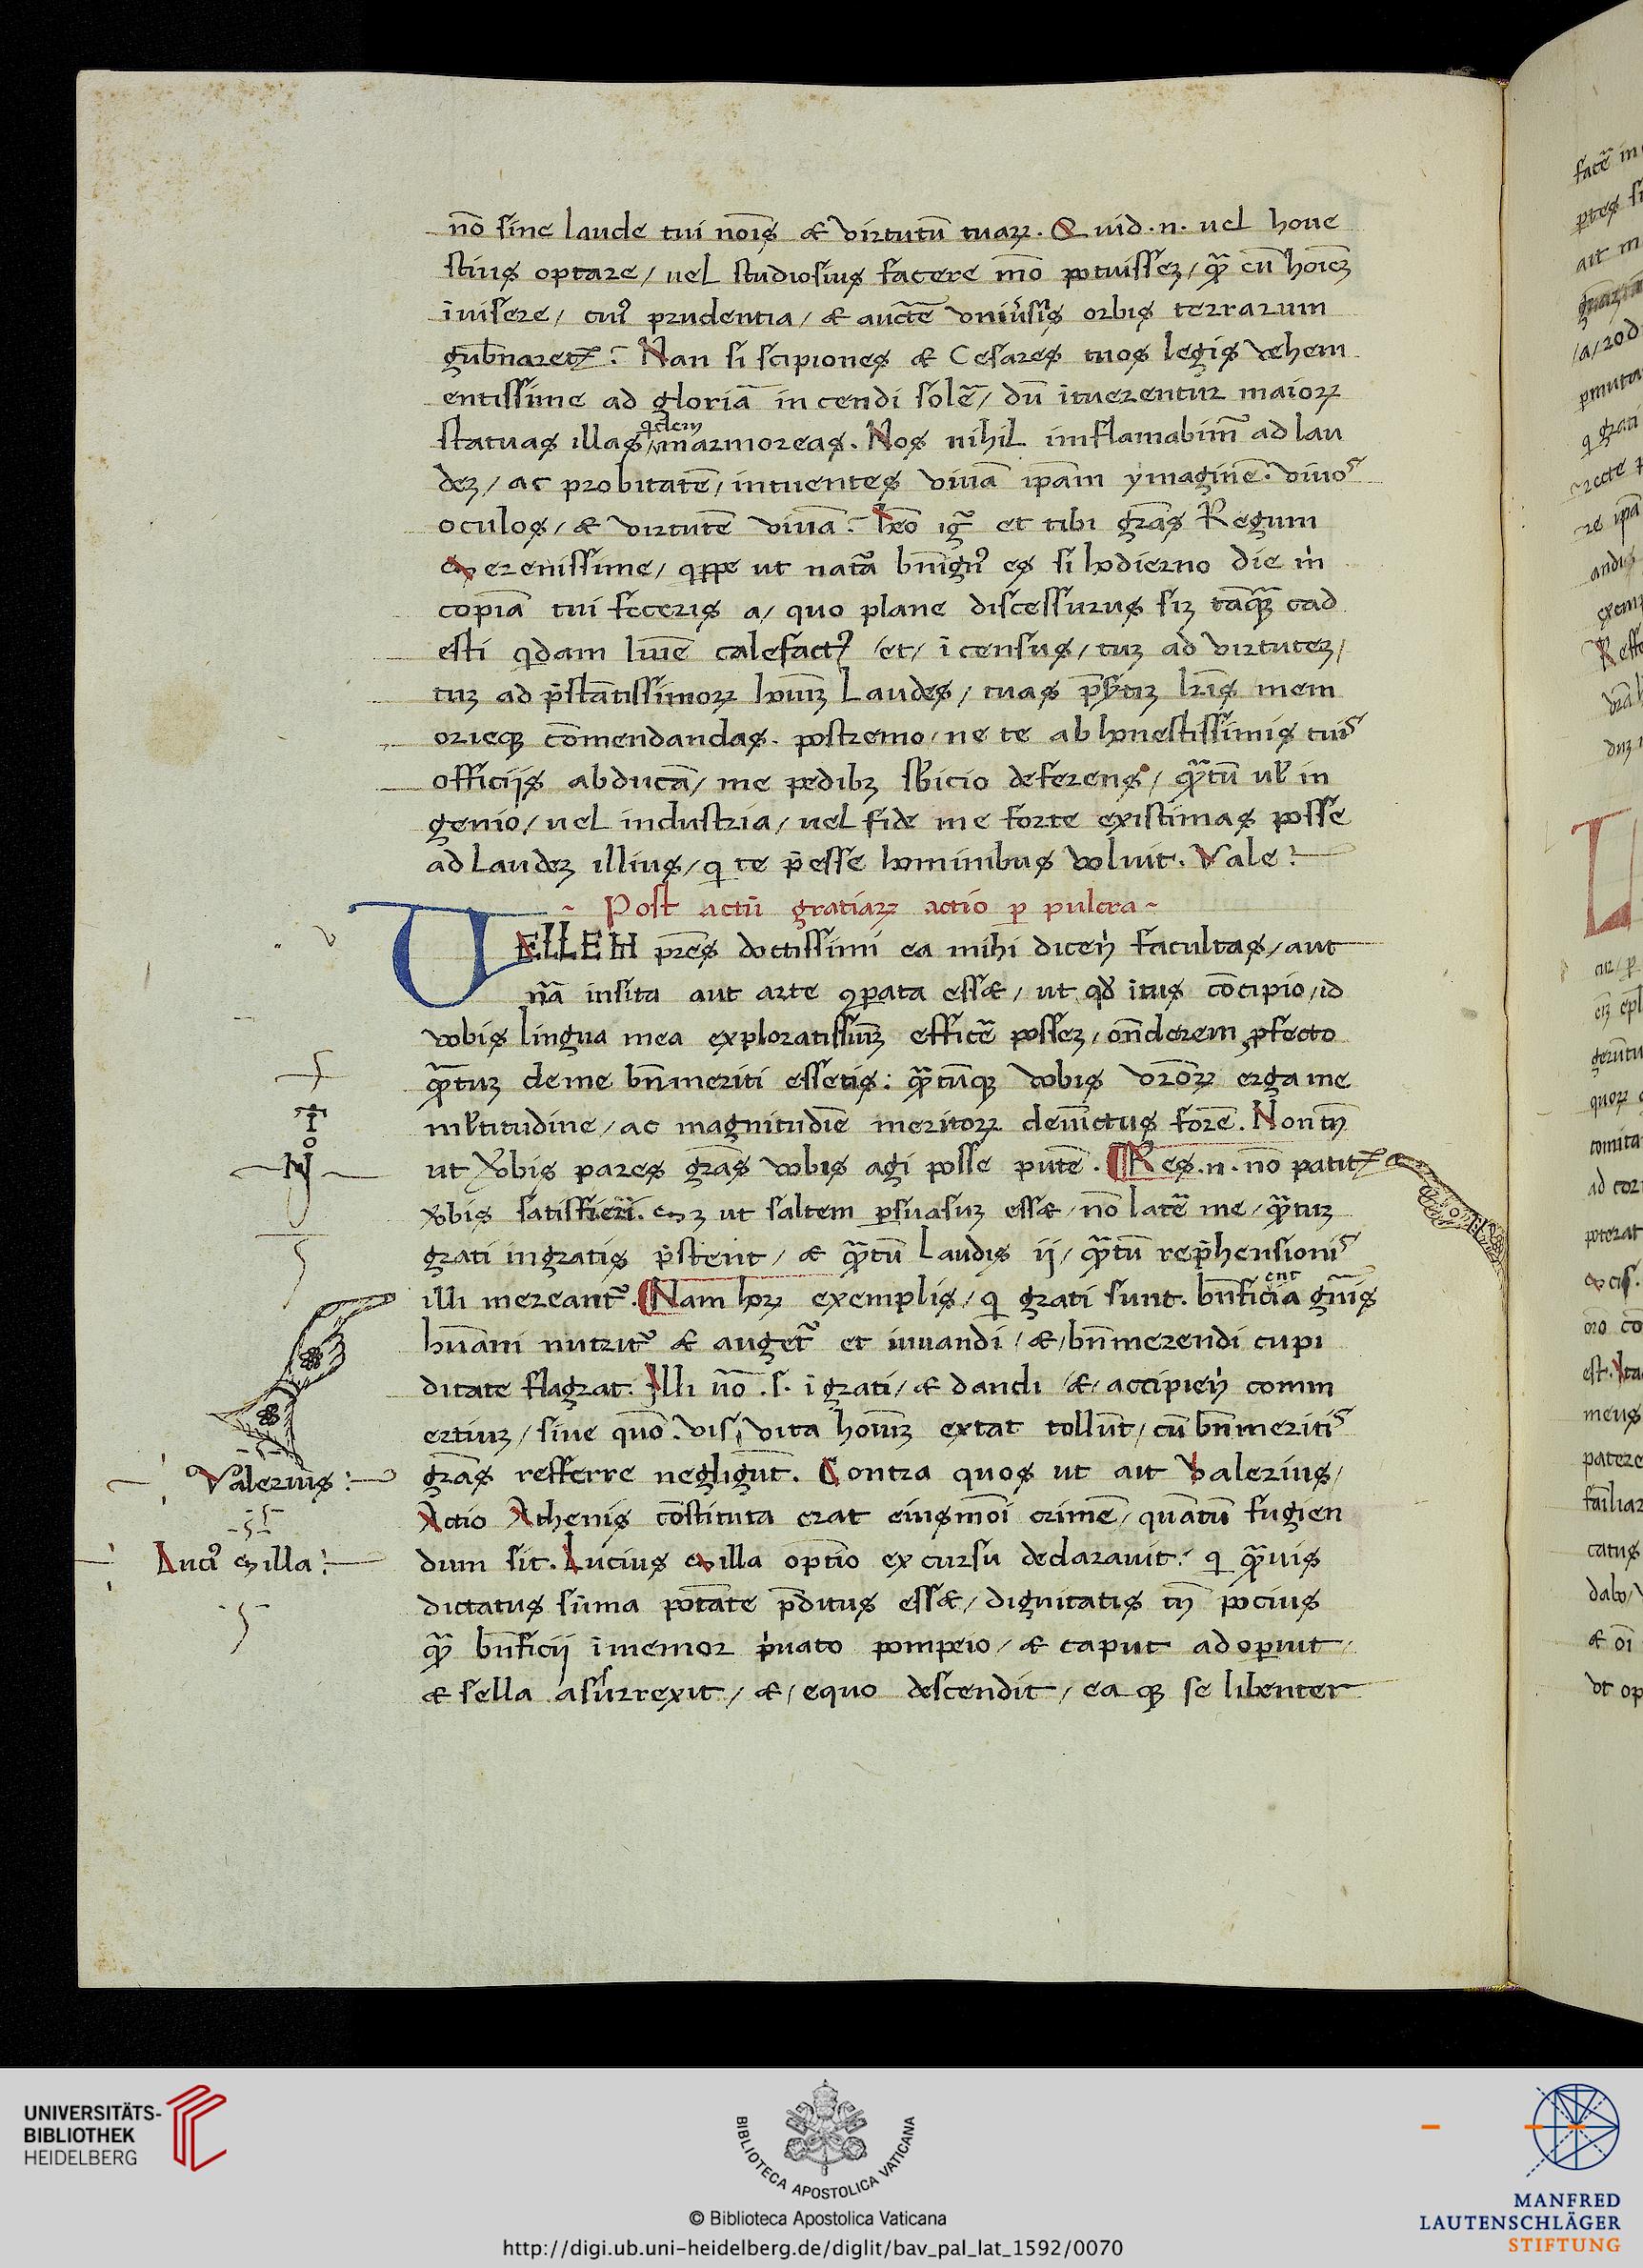 nō sine laude tui noīs & virtutū tuaꝝ. Quid .n. vel hone
stius optare / uel studiosius facere mō potuissez / qᷓ cū hoīez
īuisere / cuiꝰ prudentia / & auctē vniūsis orbis terrarum
gub̄naretᷣ. Nan si scipiones & Cesares tuos legis vehem
entissime ad gloriā in cendi solē / dū ītuerentur maioꝝ
statuas illas qidem marmoreas. Nos nihil imflamabimꝰ ad lau
dez / ac probitatē / intuentes viuā ipām ymaginē. viuos
oculos / & virtutē viuā. heo igᷓ et tibi grās Regum
Serenissime / qppe ut natᷓa bnīgnꝰ es si hodierno die m̄
copiā tui feceris a / quo plane discessurus siꝫ tāqᷓ cad
esti qdam lumē calefactꝰ / et / īcensus / tuꝫ ad virtuteꝫ /
tuꝫ ad p̄stātissimoꝝ houꝫ Laudes / tuas lrīs mem
orieqꝫ cōmendandas. postremo / ne te ab honestissimis tuis
officiis abducā / me pedibꝫ sb̄icio deferens / qᷓtū ul̄ in
genio / uel industria / uel fide me forte existimas posse
ad Laudeꝫ illius / q te p̄esse hominibus voluit. Vale :
~ Post actū gratiaꝝ actio p pulcra ~
VELLEM prēs doctissimi ea mihi dicēn facultas / aut
nᷓa insita aut arte ꝯparata ess& / ut qd ītus cōcipio / id
vobis lingua mea exploratissimꝫ efficē possez / onderem ꝓfecto
qᷓtuꝫ de me bn̄meriti essetis : qᷓtūqꝫ vobis vrōꝝ erga me
ml̄titudine / ac magnitudīe meritoꝝ deuīctus forē. Non tn̄
ut vobis pares grās vobis agi posse putē. Res .n. nō patitᷣ
vobis satisfieri. Sꝫ ut saltem ꝑsuasuꝫ ess& / nō latē me / qᷓtuꝫ
grati ingratis p̄stent / & qᷓtū Laudis ii / qᷓtū rep̄hensionis
illi mereantᷣ. Nam hoꝝ exemplis / q grati sunt. bn̄ficient ia gn̄is
hūani nutritᷣ & augetᷣ et iuuandi / & / bn̄merendi cupi
ditate flagrat. Illi uō .s. īgrati / & dandi / & / accipien̄ comm
ertiuꝫ / sine quō. vis vita houꝫ extat tollūt / cū bn̄meritis
grās refferre negligūt. Contra quos ut ait Valerius /
Actio Athenis cōstituta erat eiusmōi crimē / quātū fugien
dum sit. Lucius Silla optīo ex cursu declarauit : q qᷓuis
dictatus sūma potāte p̄ditus ess& / dignitatis tn̄ pocius
qᷓ bn̄ficii īmemor p̄uato pompeio / & caput adoperuit /
& sella asurrexit / & / equo descendit / ea qꝫ se libenter
Valerius :
Luciꝰ Silla :
UNIVERSITÄTS-
BIBLIOTHEK
HEIDELBERG
BIBLIOTECA APOSTOLICA VATICANA
© Biblioteca Apostolica Vaticana
http://digi.ub.uni-heidelberg.de/diglit/bav_pal_lat_1592/0070
MANFRED
LAUTENSCHLÄGER
STIFTUNG